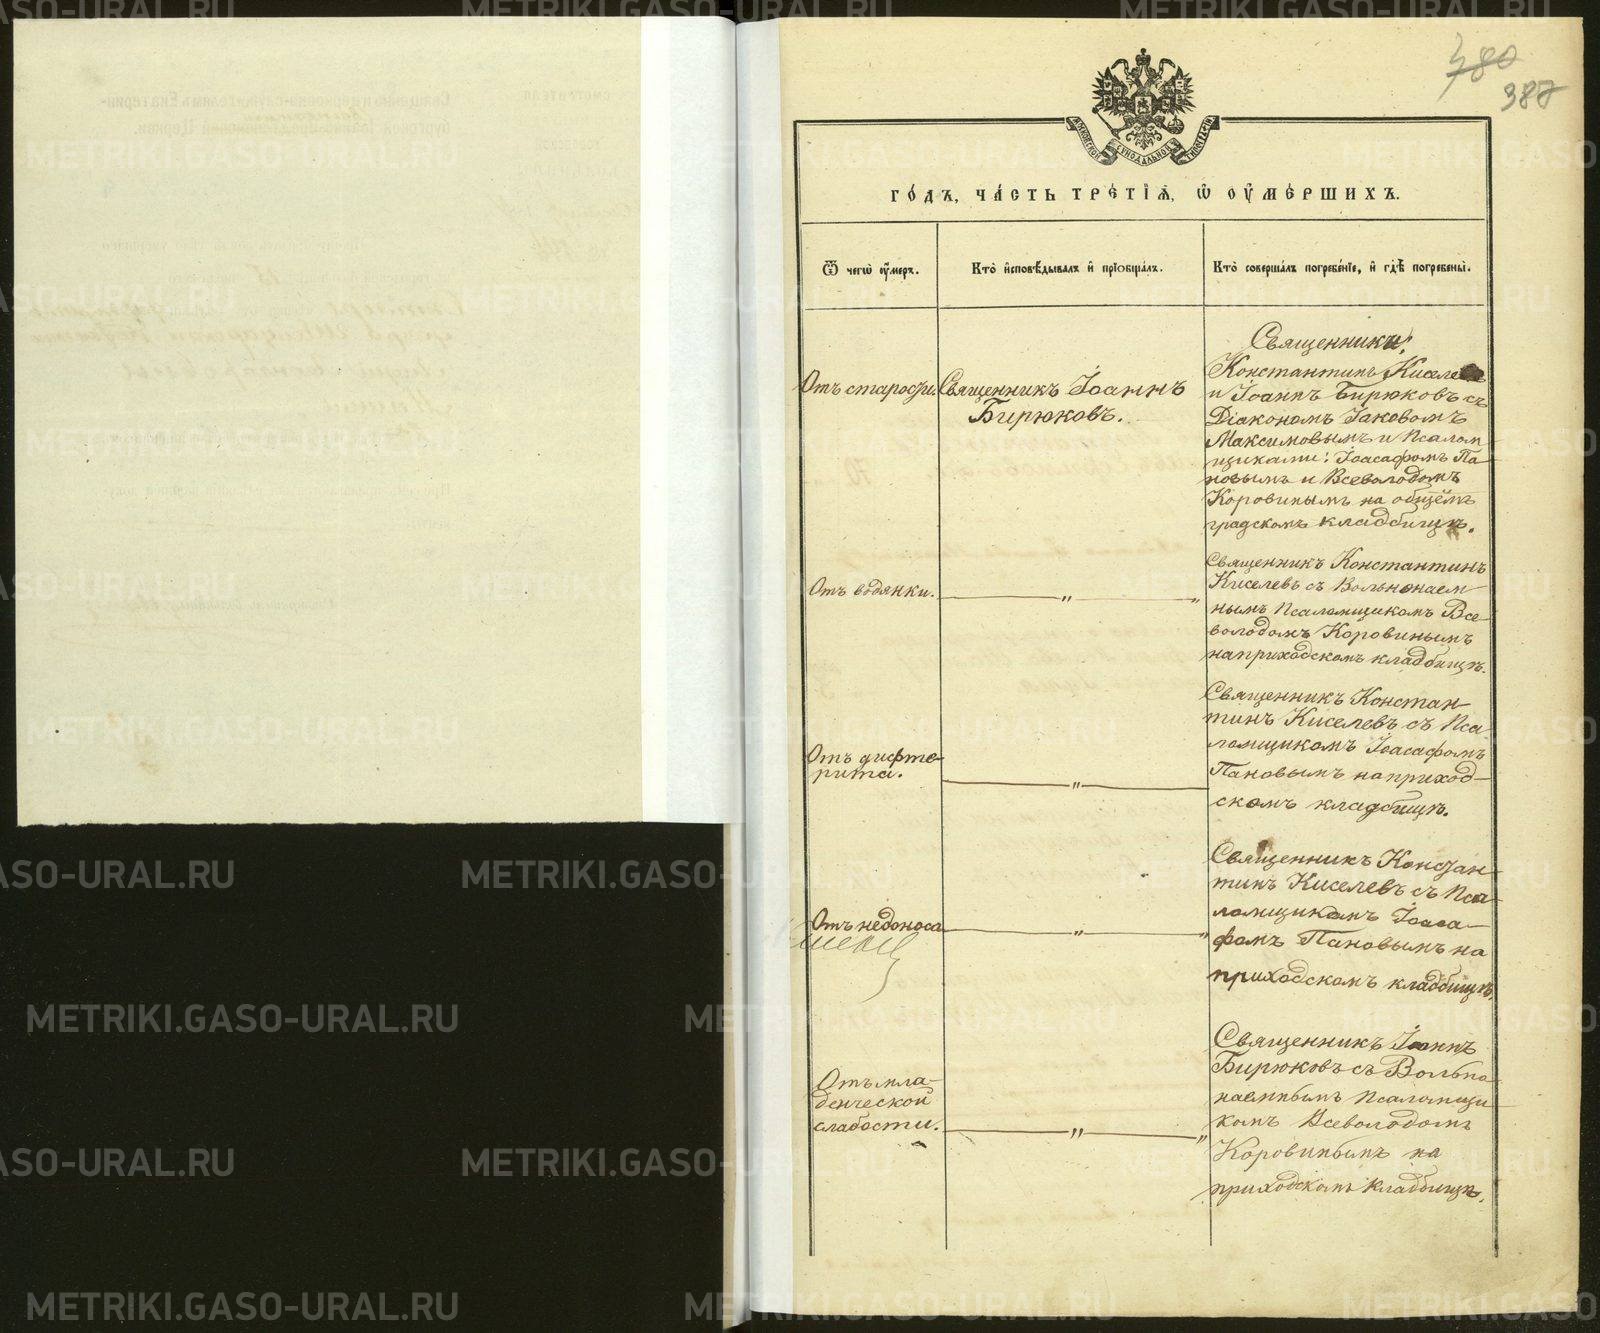 380
387
МОСКОВСКОЙ СѴНОДАЛЬНОЙ ТИПОГРАФІИ
ГОДЪ, ЧАСТЬ ТРЕТІЯ, Ѡ ОУМЕРШИХЪ.
Ѿ чегѡ оумеръ.
Кто исповѣдывалъ и пріобщалъ.
Кто совершалъ погребеніе, и гдѣ погребены.
Отъ старости.
Священникъ Іоаннъ
Бирюковъ.
Священники:
Константинъ Киселевъ
и Іоаннъ Бирюковъ съ
Діакономъ Іаковомъ
Максимовымъ и Псалом-
щиками: Іоасафомъ Па-
новымъ и Всеволодомъ
Коровинымъ на общемъ
градскомъ кладбищѣ.
Отъ водянки.
"
"
Священникъ Константинъ
Киселевъ съ Вольнонаем-
нымъ Псаломщикомъ Все-
володомъ Коровинымъ
на приходскомъ кладбищѣ.
Отъ дифте-
рита.
"
Священникъ Констан-
тинъ Киселевъ съ Пса-
ломщикомъ Іоасафомъ
Пановымъ на приход-
скомъ кладбищѣ.
Отъ недоноса
"
"
Священникъ Констан-
тинъ Киселевъ съ Пса-
ломщикомъ Іоаса-
фомъ Пановымъ на
приходскомъ кладбищѣ.
Отъ мла-
денческой
слабости.
"
"
Священникъ Іоаннъ
Бирюковъ съ Вольно-
наемнымъ Псаломщи-
комъ Всеволодомъ
Коровинымъ на
приходскомъ кладбищѣ.
METRIKI.GASO-URAL.RU